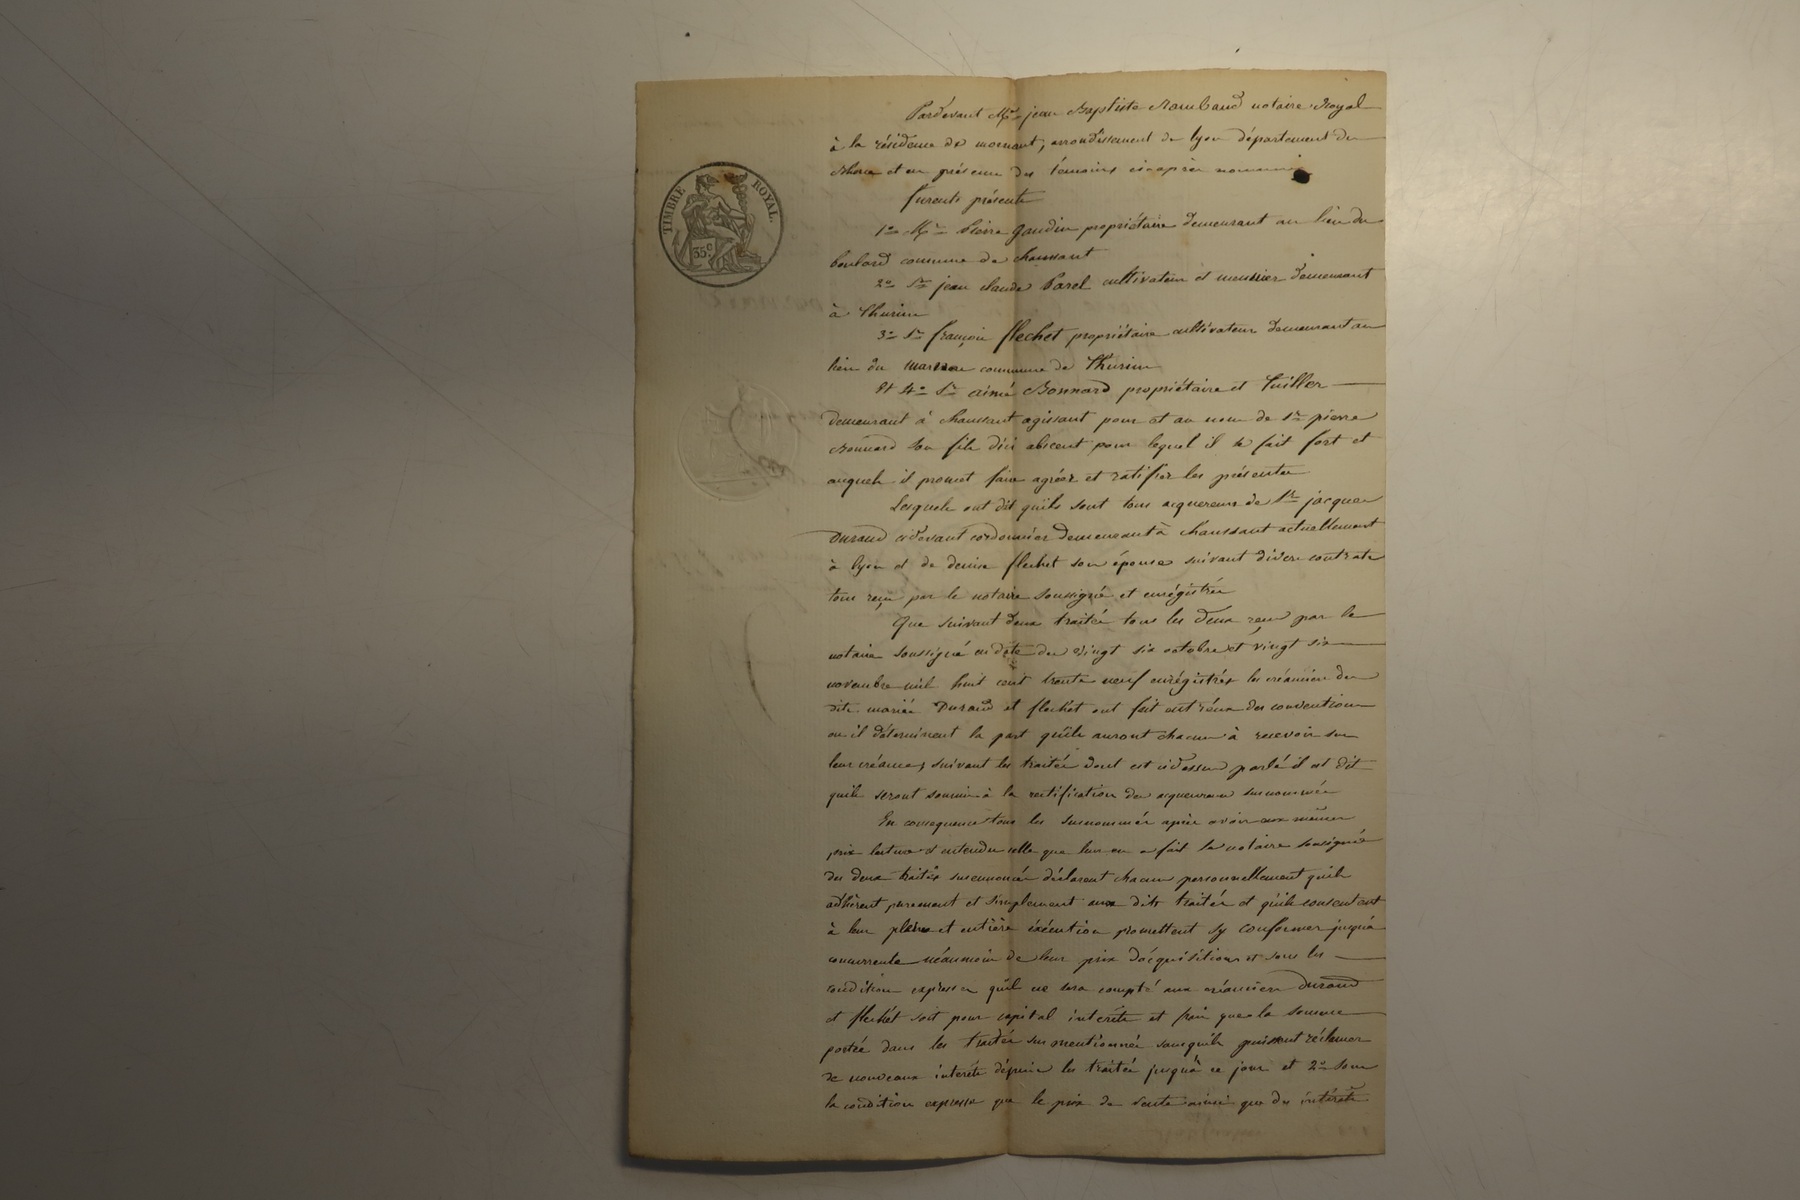 TIMBRE ROYAL.
35.c
Pardevant Me jean Baptiste Rambaud notaire Royal
à la résidence de mornant, arrondissement de lyon département du
Rhone et en présence des témoins ciaprès nommés
furents présents
1o Mr pierre gaudin propriétaire demeurant au lieu du
boulard commune de chaussant
2o Sr jean claude parel cultivateur et meunier demeurant
à Thurins
3o Sr françois flechet propriétaire cultivateur demeurant au
lieu du commune de Thurins
Et 4o Sr aimé Bonnard propriétaire et tuillier
demeurant à chaussant agissant pour et au nom de Sr pierre
Bonnard son fils dici abscent pour lequel il se fait fort et
auquels il promet faire agréer et ratifier les présentes
Lesquels ont dit quils sont tous acquereurs de Sr jacques
Durand cidevant cordonnier demeurant à chaussant actuellement
à lyon et de denise flechet son épouse suivant divers contrats
tous reçu par le notaire soussigné et enrégistrés
Que suivant deux traités tous les deux reçu par le
notaire soussigné en date des vingt six octobre et vingt six
novembre mil huit cent trente neuf enrégistrés les créanciers des
dits mariés Durand et flechet ont fait entréeux des conventions
ou il déterminent la part quils auront chacun à recevoir sur
leur créances, suivant les traités dont est cidessus parlé il est dit
quils seront soumis à la ratification des acquereurs susnommés
En consequence tous les susnommés après avoir eux mêmes
pris lecture et entendu celle que leur en a fait le notaire soussigné
des deux traités susénoncés déclarent chacun personnellement quils
adhèrent purement et simplement aux dits traités et quils consentent
à leur pleine et entière éxécution promettent sy conformer jusquà
concurrence néaumoin de leur prix dacquisitions et sous les
condition expresses quil ne sera compté aux créanciers Durand
et flechét soit pour capital intérêts et frais que la somme
portée dans les traités sus mentionnés sans quils puissent réclamer
de nouveaux intérêts dépuis les traités jusquà ce jour et 2o sous
la condition expresse que le prix de vente ainsi que des intérêts